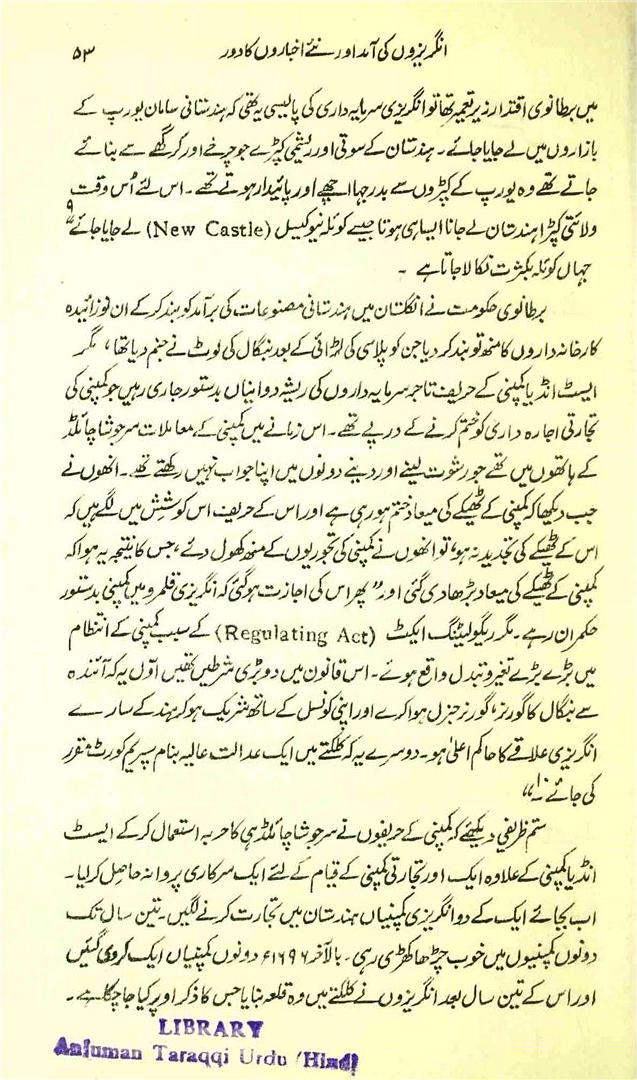 انگریزوں کی آمد اور نئے اخباروں کا دور ۵۳
میں برطانوی اقتدار زیر تعمیر تھا تو انگریزی سرمایہ داری کی پالیسی یہ تھی کہ ہندستانی سامان یورپ کے
بازاروں میں لے جایا جائے۔ ہندستان کے سوتی اور ریشمی کپڑے جو چرخے اور کرگھے سے بنائے
جاتے تھے وہ یورپ کے کپڑوں سے بدرجہا اچھے اور پائیدار ہوتے تھے۔ اس لئے اُس وقت
ولائتی کپڑا ہندستان لے جانا ایسا ہی ہوتا جیسے کوئلہ نیوکیسل (New Castle) لے جایا جائے
جہاں کوئلہ بکثرت نکالا جاتا ہے ۔
برطانوی حکومت نے انگلستان میں ہندستانی مصنوعات کی برآمد کو بند کر کے ان نوزائیدہ
کارخانہ داروں کا منھ تو بند کر دیا جن کو پلاسی کی لڑائی کے بعد بنگال کی لوٹ نے جنم دیا تھا، مگر
ایسٹ انڈیا کمپنی کے حریف تاجر سرمایہ داروں کی ریشہ دوانیاں بدستور جاری رہیں جو کمپنی کی
تجارتی اجارہ داری کو ختم کرنے کے درپے تھے۔ اس زمانے میں کمپنی کے معاملات سر جوشا چائلڈ
کے ہاتھوں میں تھے جو رشوت لینے اور دینے دونوں میں اپنا جواب نہیں رکھتے تھے۔ انھوں نے
جب دیکھا کہ کمپنی کے ٹھیکے کی میعاد ختم ہو رہی ہے اور اس کے حریف اس کوشش میں لگے ہیں کہ
اس کے ٹھیکے کی تجدید نہ ہو، تو انھوں نے کمپنی کی تجوریوں کے منھ کھول دئے، جس کا نتیجہ یہ ہوا کہ
کمپنی کے ٹھیکے کی میعاد بڑھا دی گئی اور ”پھر اس کی اجازت ہو گئی کہ انگریزی قلمرو میں کمپنی بدستور
حکمران رہے۔ مگر ریگولیٹنگ ایکٹ (Regulating Act) کے سبب کمپنی کے انتظام
میں بڑے بڑے تغیر و تبدل واقع ہوئے۔ اس قانون میں دو بڑی شرطیں تھیں اوّل یہ کہ آئندہ
سے بنگال کا گورنر، گورنر جنرل ہوا کرے اور اپنی کونسل کے ساتھ شریک ہو کر ہند کے سارے
انگریزی علاقے کا حاکم اعلیٰ ہو۔ دوسرے یہ کہ کلکتے میں ایک عدالت عالیہ بنام سپریم کورٹ مقرر
کی جائے۔“
ستم ظریفی دیکھئے کہ کمپنی کے حریفوں نے سر جوشا چائلڈ ہی کا حربہ استعمال کر کے ایسٹ
انڈیا کمپنی کے علاوہ ایک اور تجارتی کمپنی کے قیام کے لئے ایک سرکاری پروانہ حاصل کر لیا۔
اب بجائے ایک کے دو انگریزی کمپنیاں ہندستان میں تجارت کرنے لگیں۔ تین سال تک
دونوں کمپنیوں میں خوب چڑھا کھڑی رہی۔ بالآخر ۱۶۹۶ء دونوں کمپنیاں ایک کر دی گئیں
اور اس کے تین سال بعد انگریزوں نے کلکتے میں وہ قلعہ بنایا جس کا ذکر اوپر کیا جا چکا ہے۔
LIBRARY
Anjuman Taraqqi Urdu (Hind)